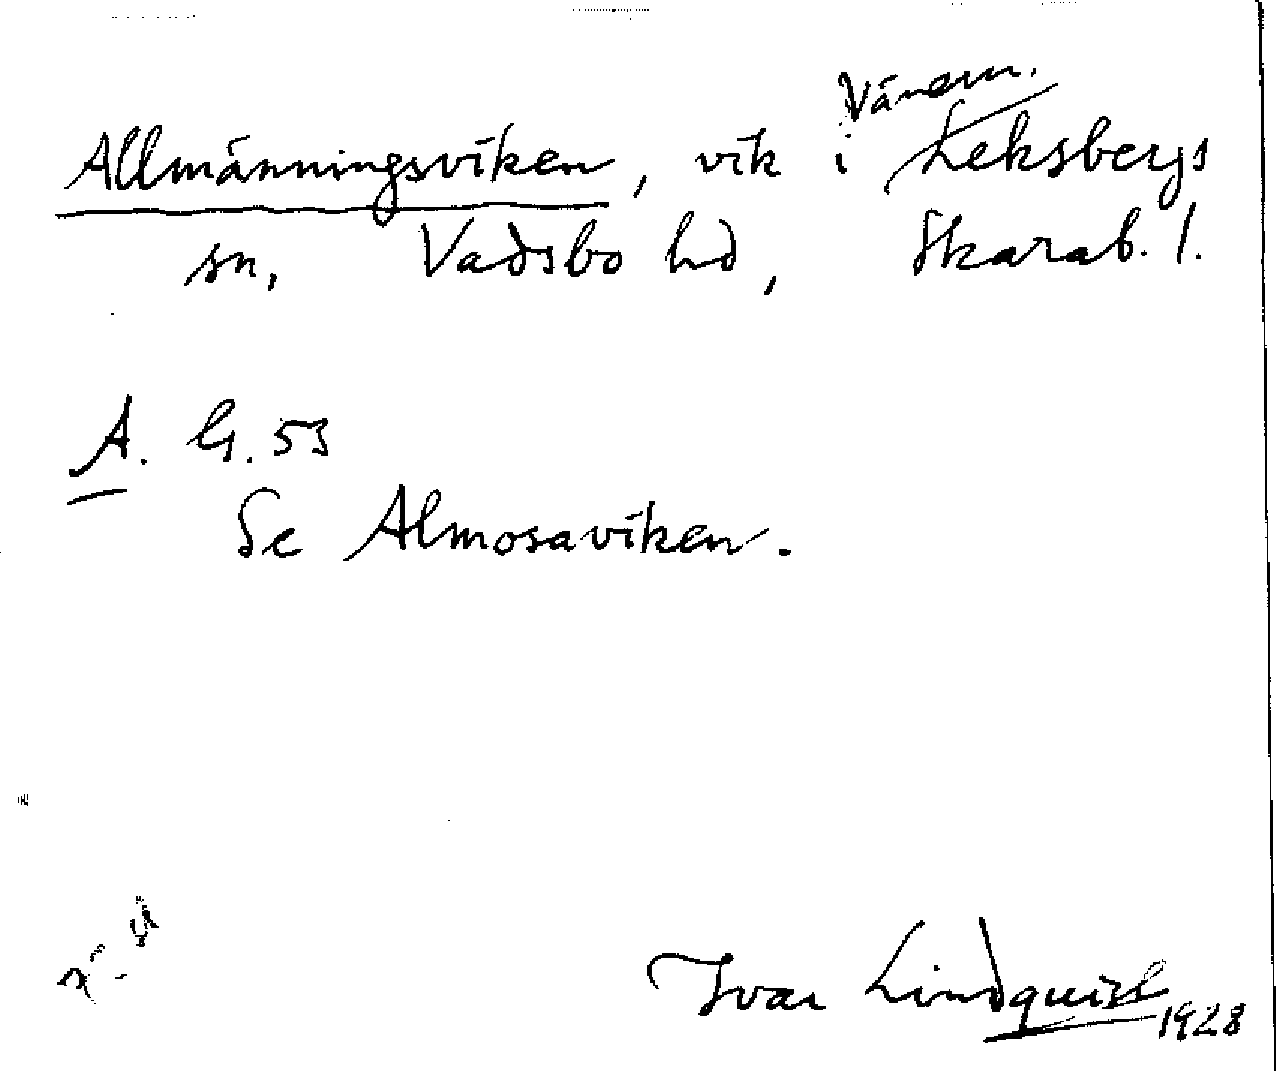 Vänern.
Allmänningsviken, vik i Leksbergs
sn, Vadsbo hd, Skarab. l.
A. G. 53
Se Almosaviken.
Ivar Lindquist
1928